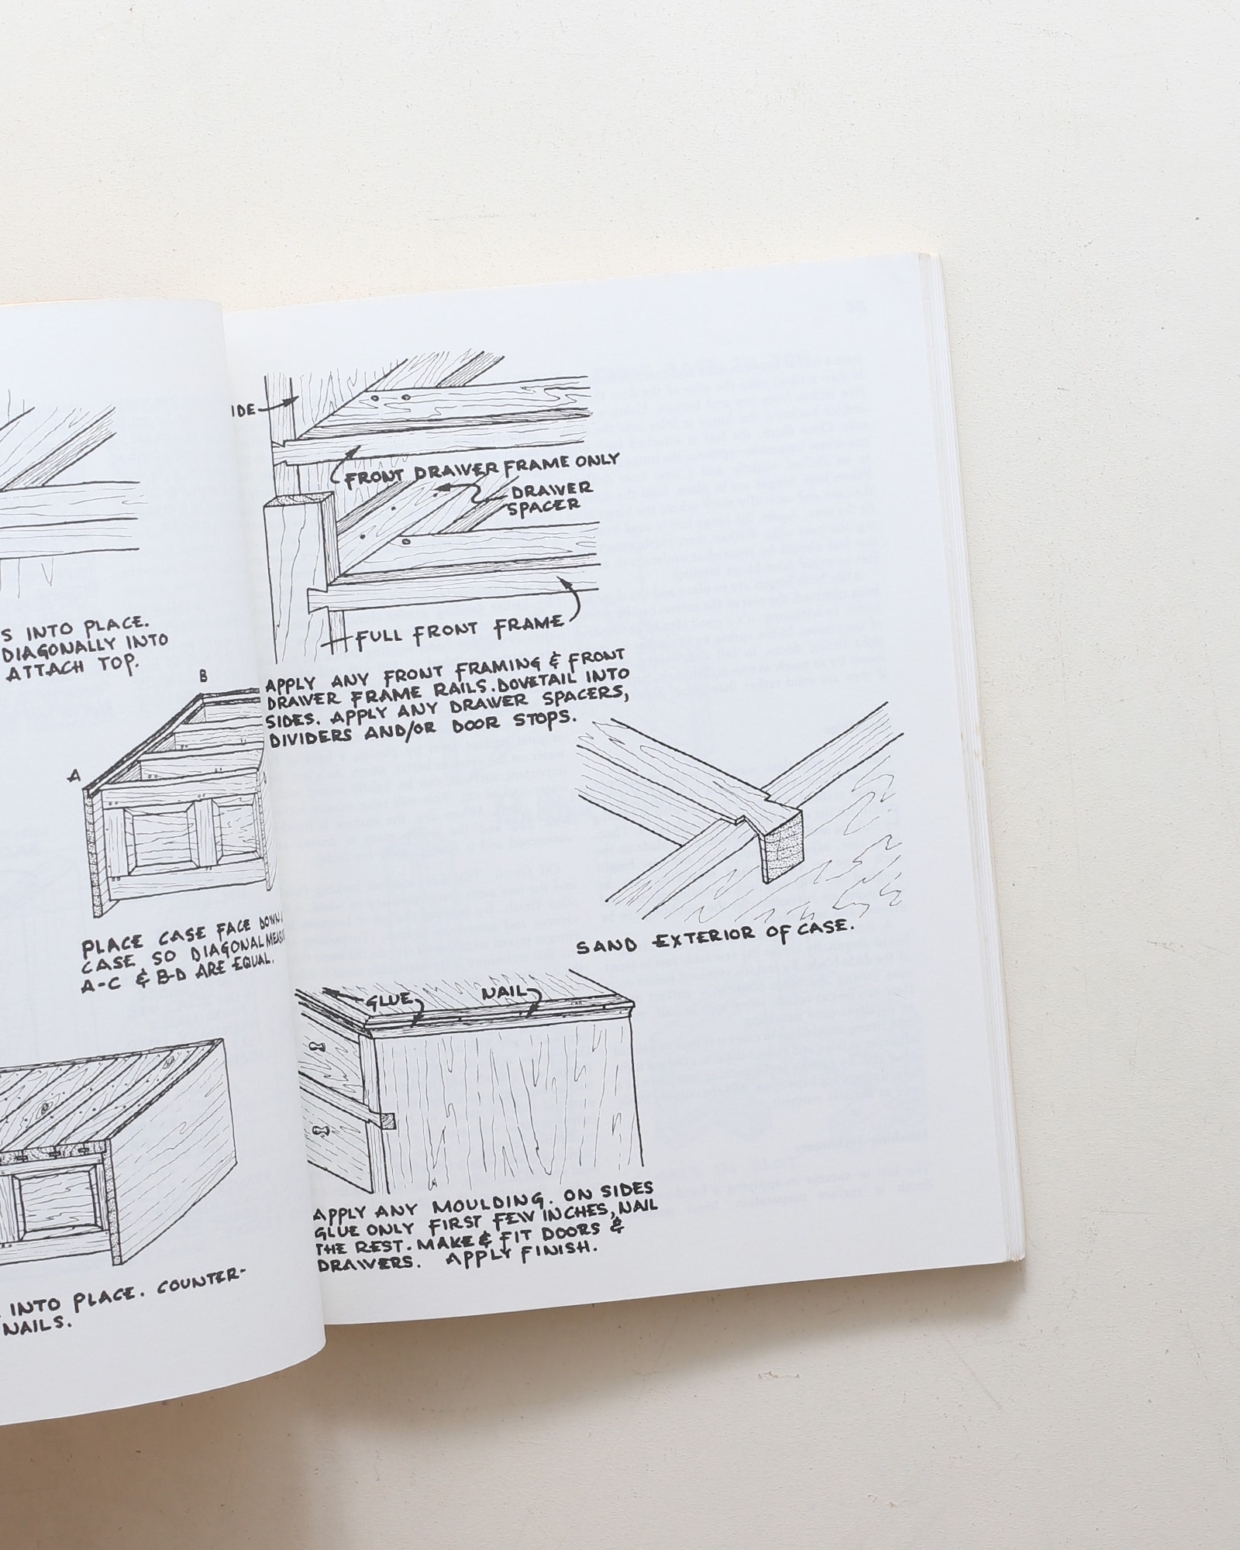 S INTO PLACE.
DIAGONALLY INTO
ATTACH TOP.
B
A
PLACE CASE FACE DOWN.
CASE SO DIAGONAL
A-C & B-D ARE EQUAL.
INTO PLACE. COUNTER-
NAILS.
IDE
FRONT DRAWER FRAME ONLY
DRAWER
SPACER
FULL FRONT FRAME
APPLY ANY FRONT FRAMING & FRONT
DRAWER FRAME RAILS. DOVETAIL INTO
SIDES. APPLY ANY DRAWER SPACERS,
DIVIDERS AND/OR DOOR STOPS.
SAND EXTERIOR OF CASE.
GLUE
NAIL
APPLY ANY MOULDING. ON SIDES
GLUE ONLY FIRST FEW INCHES, NAIL
THE REST. MAKE & FIT DOORS &
DRAWERS. APPLY FINISH.